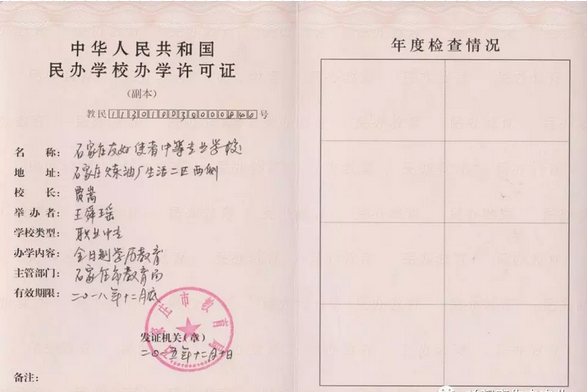 中华人民共和国
民办学校办学许可证
(副本)
教民 号
名称: 石家庄友好使者中等专业学校
地址: 石家庄炼油厂生活二区西侧
校长: 贾嵩
举办者: 王舜瑶
学校类型: 职业中专
办学内容: 全日制学历教育
主管部门: 石家庄市教育局
有效期限: 二〇一八年十二月底
发证机关(章)
二〇一五年十二月 日
备注:
年度检查情况